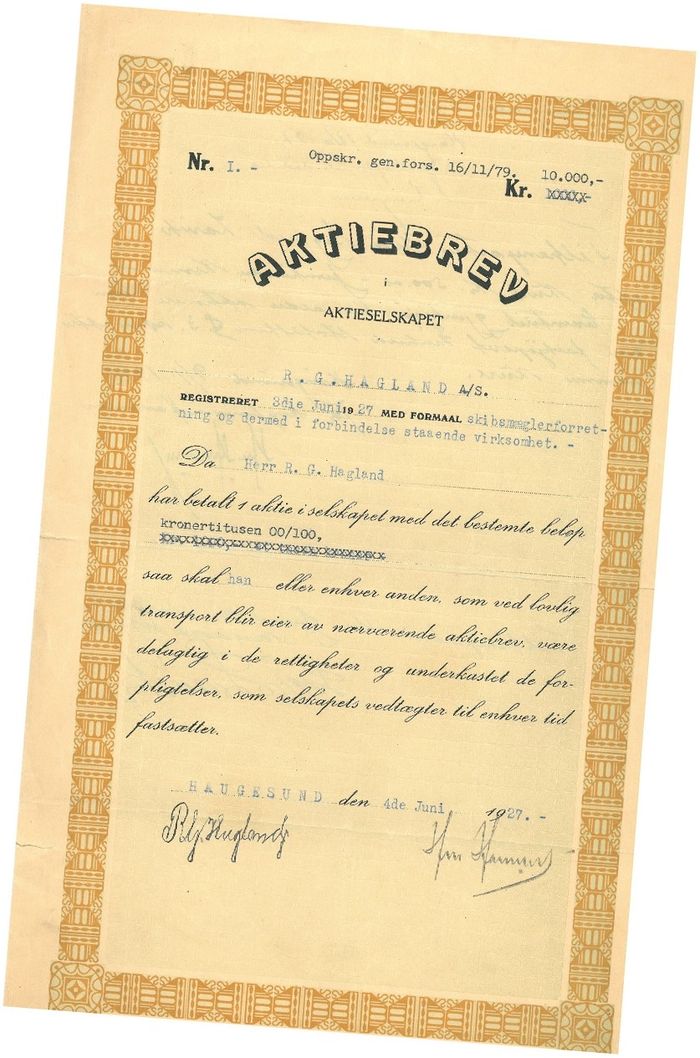 Nr. I. -
Oppskr. gen.fors. 16/11/79. 10.000,-
Kr. XXXXX-
AKTIEBREV
i
AKTIESELSKAPET
R. G. HAGLAND A/S.
REGISTRERET 3die Juni 1927 MED FORMAAL skibsmæglerforret-
ning og dermed i forbindelse staaende virksomhet. -
Da Herr R. G. Hagland
har betalt 1 aktie i selskapet med det bestemte beløp
kronertitusen 00/100,
saa skal han eller enhver anden, som ved lovlig
transport blir eier av nærværende aktiebrev, være
delagtig i de rettigheter og underkastet de for-
pligtelser, som selskapets vedtægter til enhver tid
fastsætter.
HAUGESUND den 4de Juni 1927. -
R. G. Hagland